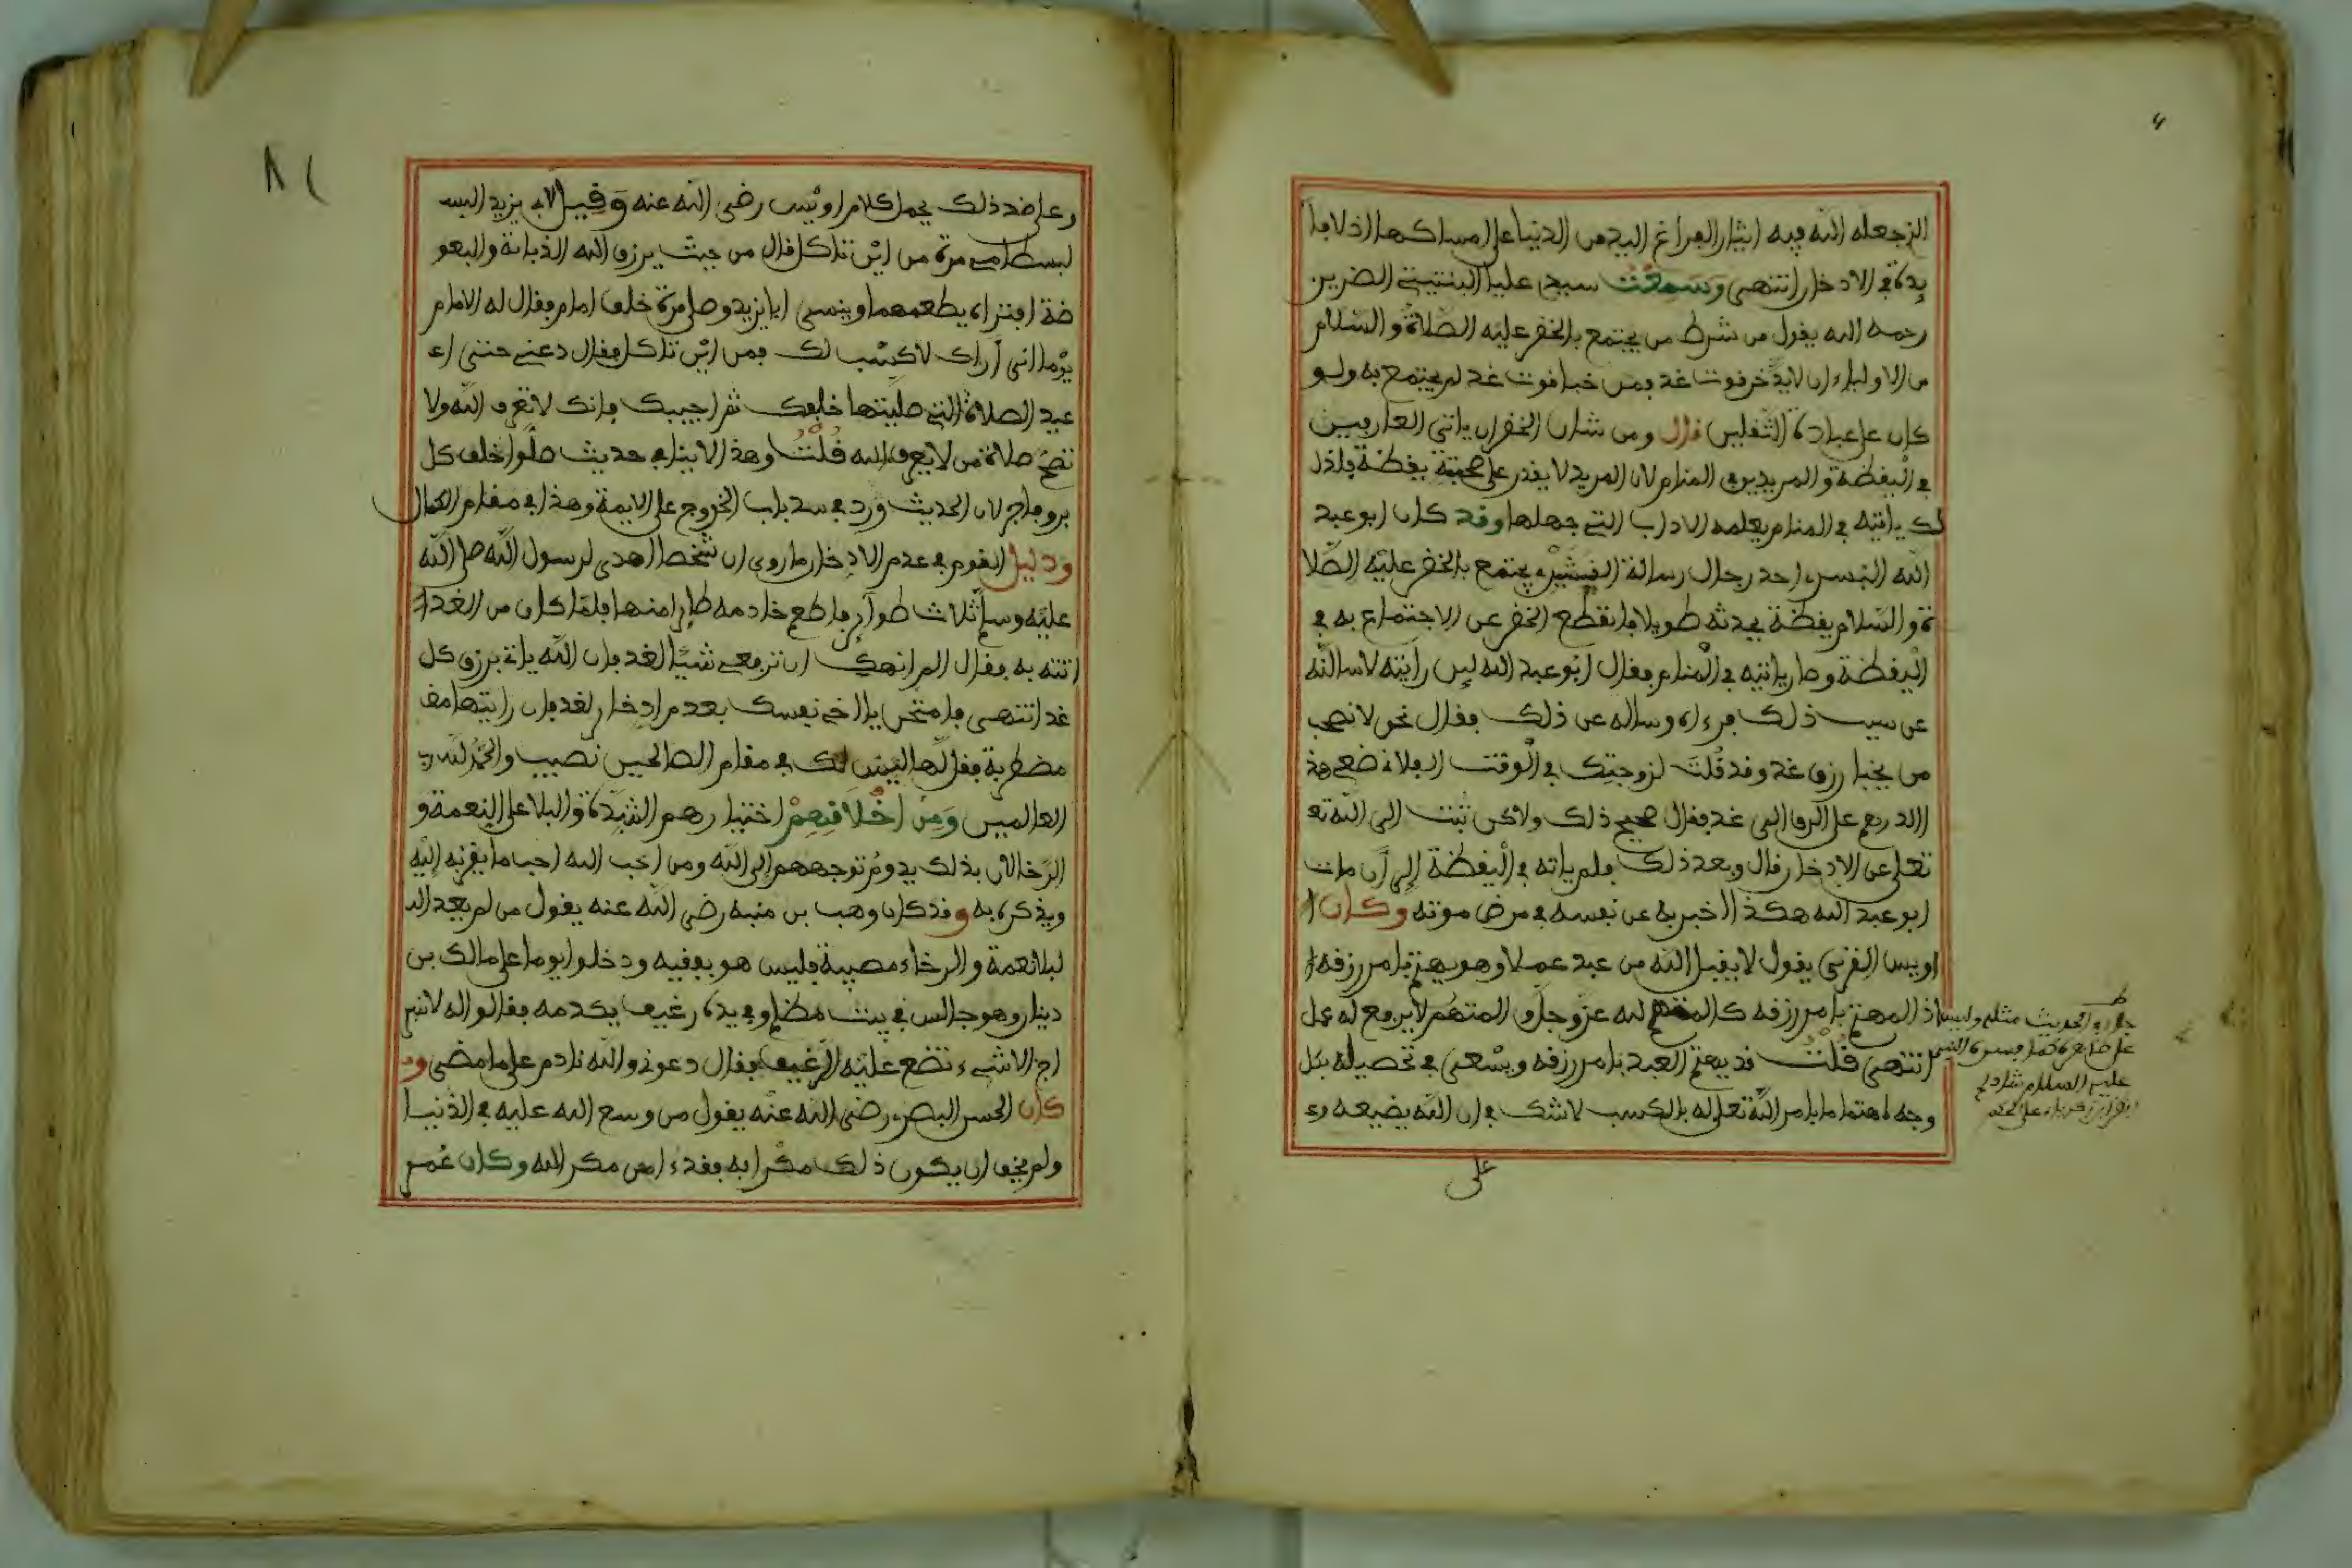 الذي جعله الله فيه ايثار الفراغ اليد من الدنيا على امساكها اذ لا فا
يدة في الادخار انتهى وسمعت سيدي عليا البنتيتي الضرير
رحمه الله يقول من شرط من يجتمع بالخضر عليه الصلاة والسلام
من الاولياء ان لا يدخر قوت غد فمن خبا قوت غد لم يجتمع به ولو
كان على عبادة الثقلين قال ومن شان الخضر ان ياتي العارفين
في اليقظة والمريدين في المنام لان المريد لا يقدر على صحبته يقظة فلذ
لك ياتيه في المنام يعلمه الاداب التي جهلها وقد كان ابو عبد
الله التستري احد رجال رسالة القشيري يجتمع بالخضر عليه الصلا
ة والسلام يقظة يحدثه طويلا فانقطع الخضر عن الاجتماع به في
اليقظة وصار ياتيه في المنام فقال ابو عبد الله لين رايته لاسالنه
عن سبب ذلك فرءاه وساله عن ذلك فقال نحن لا نصحب
من يخبا رزق غد وقد قلت لزوجتك في الوقت الفلاني ضعي هذ
ا الدرهم على الرف الى غد فقال صحيح ذلك ولاكن تبت الى الله تع
تعلى عن الادخار قال وبعد ذلك فلم ياته في اليقظة الى ان مات
ابو عبد الله هكذا اخبر به عن نفسه في مرض موته وكان
اويس القرني يقول لا يقبل الله من عبد عملا وهو يهتم بامر رزقه
اذ المهتم بامر رزقه كالمتهم لله عز وجل والمتهم لا يرفع له عمل
انتهى قلت قد يهتم العبد بامر رزقه ويسعى في تحصيله بكل
وجه اهتماما بامر الله تعلى له بالكسب لا شك في ان الله يضيعه وء
على
وعلى ضد ذلك يحمل كلام اويس رضي الله عنه وقيل لابي يزيد البس
لبسطامي مرة من اين تاكل قال من حيث يرزق الله الذبابة والبعو
ضة افتراه يطعمهما وينسى ابا يزيد وصلى مرة خلف امام فقال له الامام
يوما اني اراك لا كسب لك فمن اين تاكل فقال دعني حتى اء
عيد الصلاة التي صليتها خلفك ثم اجيبك فانك لا تعرف الله ولا
تصح صلاة من لا يعرف الله قلت وهذا لا ينافي حديث صلوا خلف كل
بر وفاجر لان الحديث ورد في سد باب الخروج على الايمة وهذا في مقام الكمال
ودليل القوم في عدم الادخار ما روي ان شخصا اهدى لرسول الله صلى الله
عليه وسلم ثلاث طوائر فاطعم خادمه طايرا منها فلما كان من الغد
اتته به فقال الم انهك ان ترفعي شيئا لغد فان الله ياتي برزق كل
غد انتهى فامتحن يا اخي نفسك بعدم ادخار لغد فان رايتها مض
مضطربة فقل لها ليس لك في مقام الصالحين نصيب والحمد لله رب
العالمين ومن اخلاقهم اختيارهم الشدة والبلا على النعمة و
الرخا لان بذلك يدوم توجههم الى الله ومن احب الله احب ما يقربه اليه
ويذكره به وقد كان وهب بن منبه رضي الله عنه يقول من لم يعد الب
لبلا نعمة والرخاء مصيبة فليس هو بفقيه ودخلوا يوما على مالك بن
دينار وهو جالس في بيت مظلم وفي يده رغيف يكدمه فقالوا له لا تنبر
اج الا شيء تضع عليه الرغيف فقال دعوني والله نادم على ما مضى وء
كان الحسن البصري رضي الله عنه يقول من وسع الله عليه في الدنيا
ولم يخف ان يكون ذلك مكرا به فقدء امن مكر الله وكان عمر